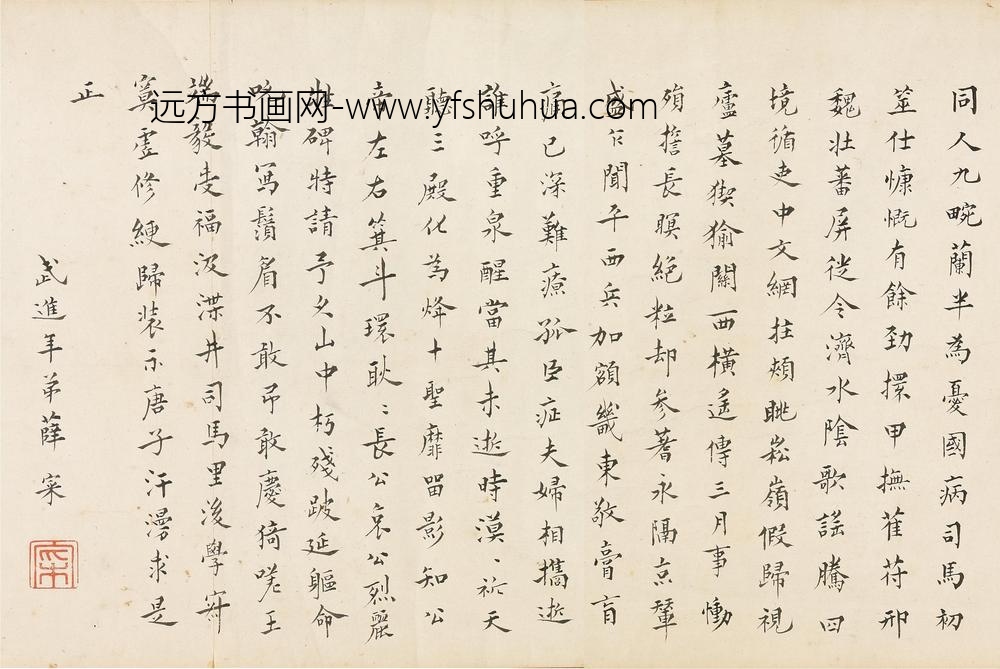 同人九畹蘭半為憂國病司馬初
筮仕慷慨有餘勁擐甲撫萑苻邢
魏壯蕃屏徙令濟水陰歌謠騰四
境循吏中文網拄頰眺崧嶺假歸視
廬墓猰㺄關西橫遙傳三月事慟
殞詹長瞑絕粒却參蓍永隔京輦
盛乍聞平西兵加額畿東敬膏肓
痛已深難療孤臣症夫婦相攜逝
誰呼重泉醒當其未逝時漠、訴天
聽三殿化為烽十聖靡留影知公
在左右箕斗環耿、長公哀公烈麗
牲碑特請予久山中朽殘跛延軀命
吮翰寫鬚眉不敢弔敢慶猗嗟王
毅受福汲渫井司馬里後學
寞虛修綆歸裝示唐子汗漫求是
正
武進年弟薛寀
远方书画网-www.yfshuhua.com